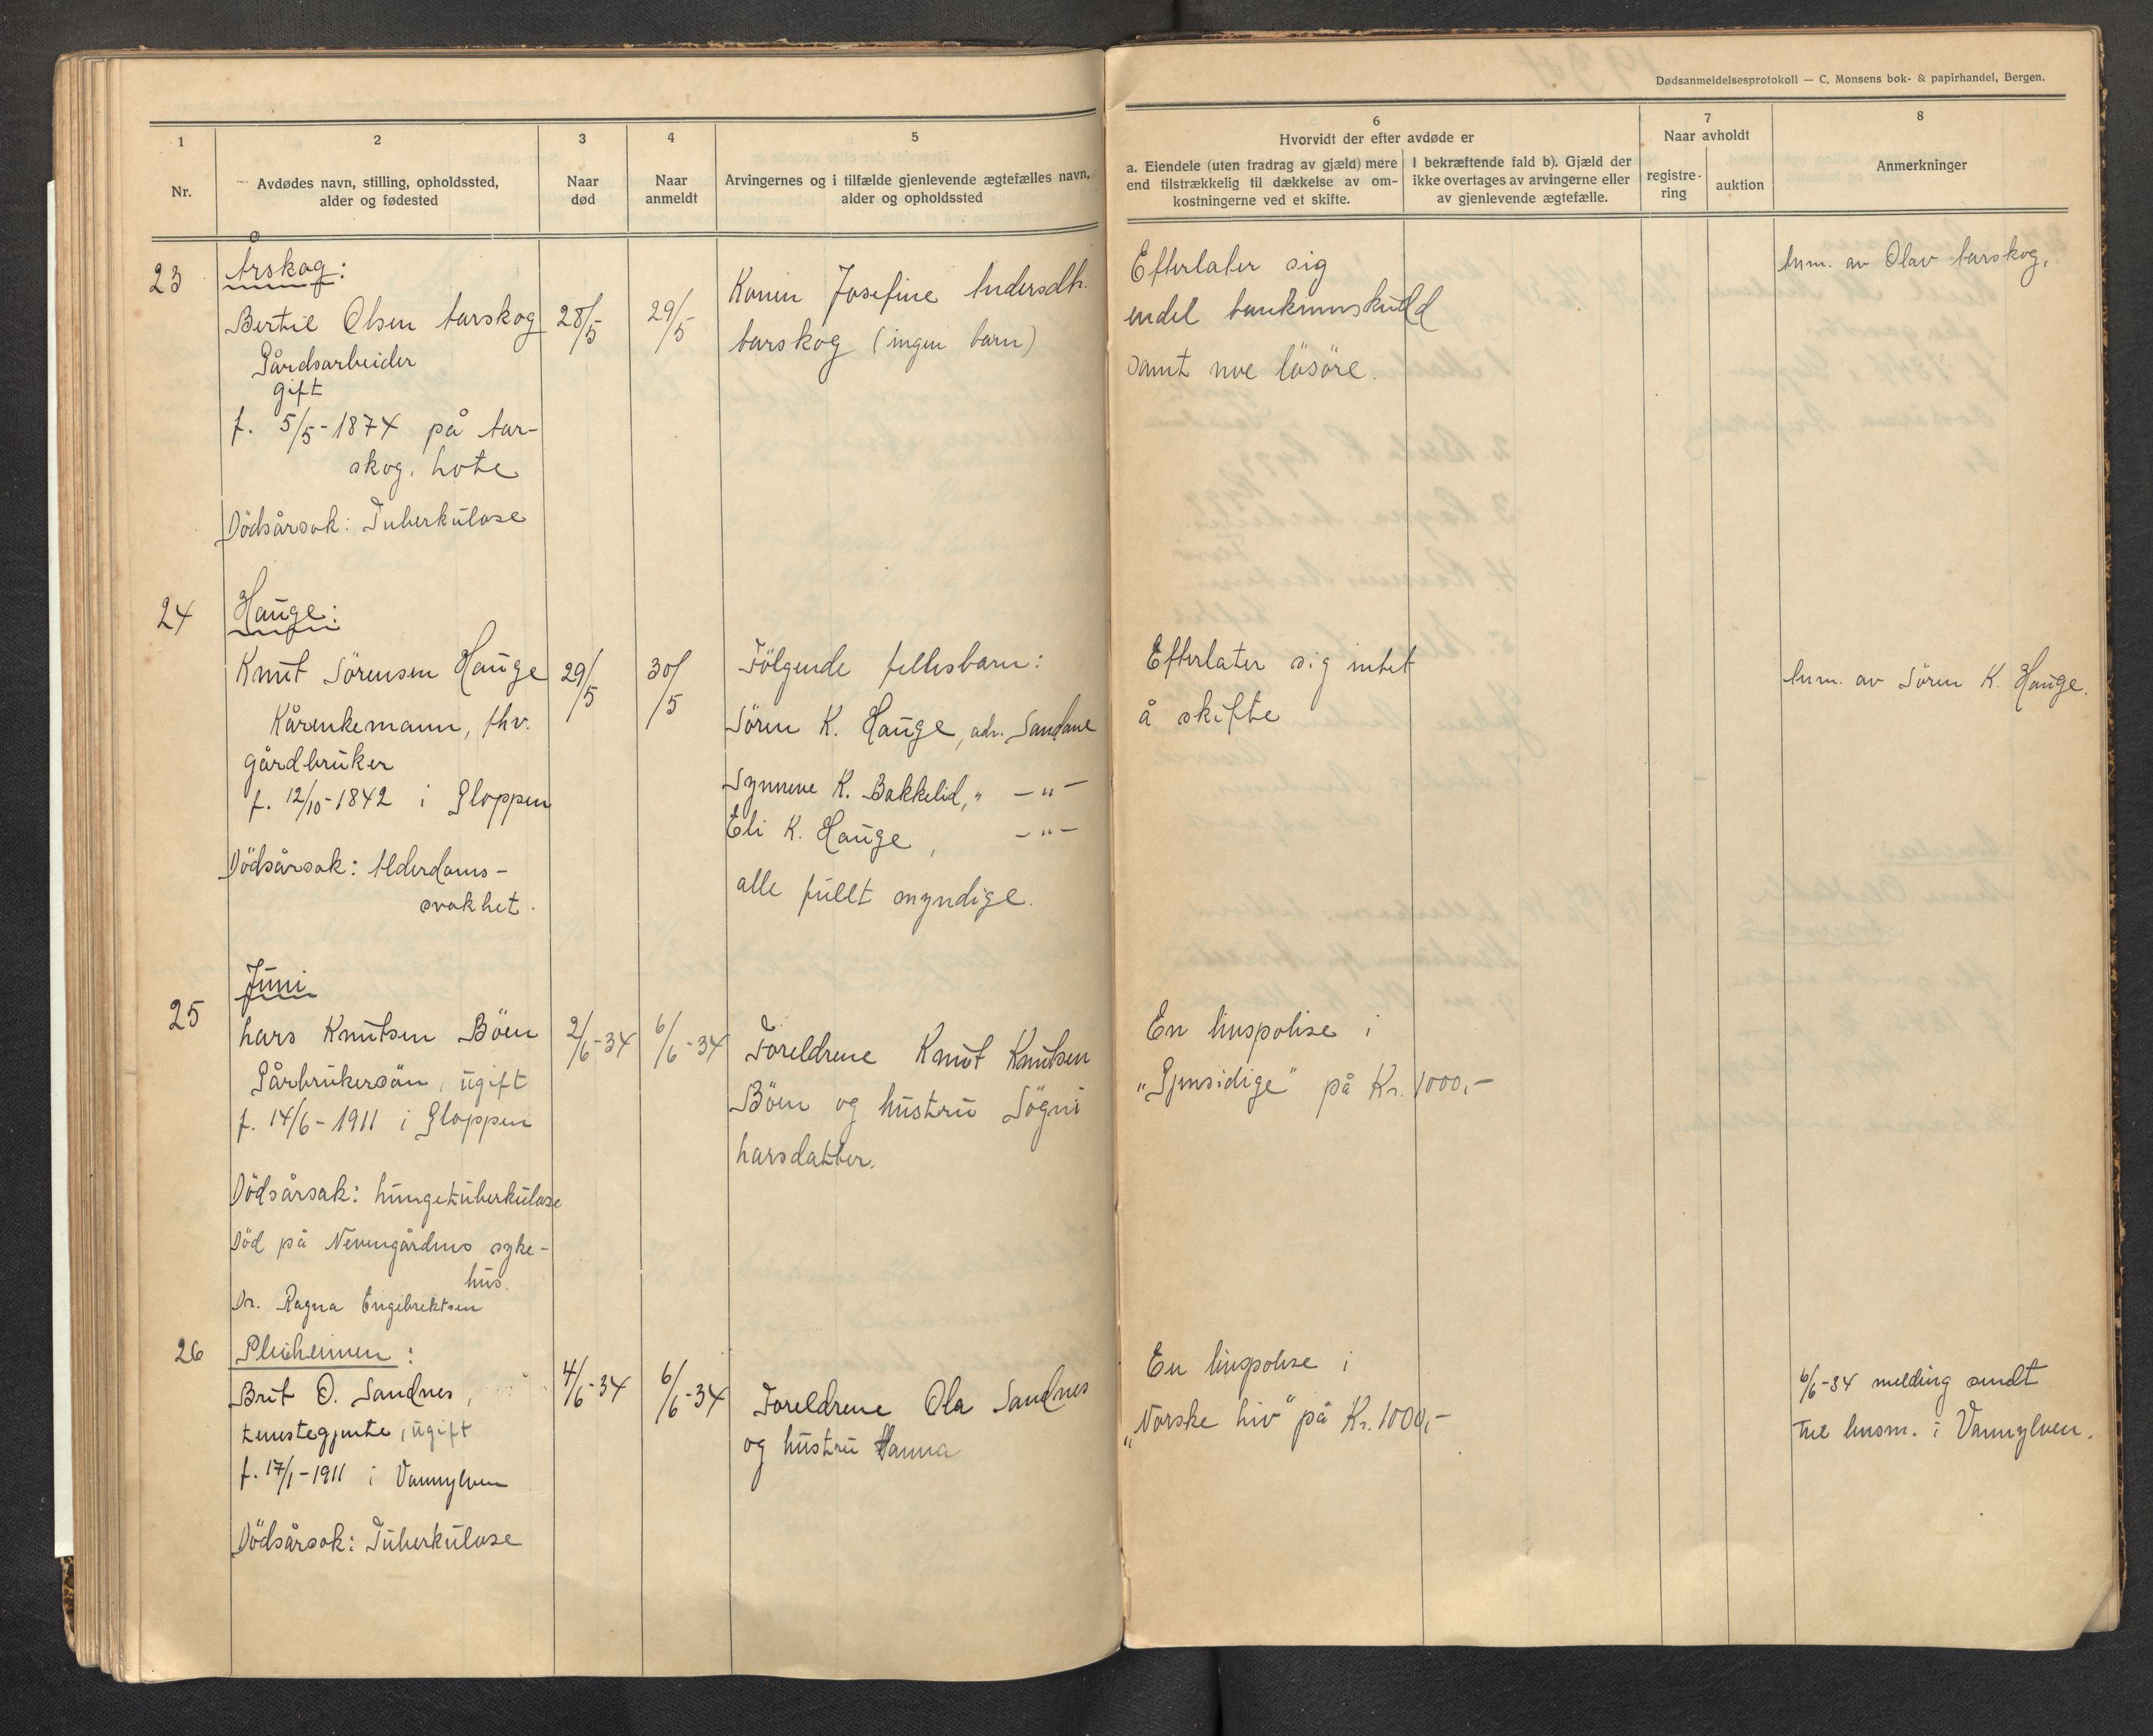 Dødsanmeldelsesprotokoll — C. Monsens bok- & papirhandel, Bergen.
1
Nr.
2
Avdødes navn, stilling, opholdssted,
alder og fødested
3
Naar
død
4
Naar
anmeldt
5
Arvingernes og i tilfælde gjenlevende ægtefælles navn,
alder og opholdssted
6
Hvorvidt der efter avdøde er
a. Eiendele (uten fradrag av gjæld) mere
end tilstrækkelig til dækkelse av om-
kostningerne ved et skifte.
I bekræftende fald b). Gjæld der
ikke overtages av arvingerne eller
av gjenlevende ægtefælle.
7
Naar avholdt
registre-
ring
auktion
8
Anmerkninger
23
Årskog:
Bertil Olsen Aarskog
Gårdsarbeider
gift
f. 5/5-1874 på Aar-
skog. Lote
Dödsårsak: Tuberkulose
28/5
29/5
Konen Josefine Andersdtr.
Aarskog (ingen barn)
Efterlater sig
endel bankinnskudd
samt noe lösöre.
Anm. av Olav Aarskog.
24
Hauge:
Knut Sörensen Hauge
Kårenkemann, fhv.
gårdbruker
f. 12/10-1842 i Gloppen
Dödsårsak: Alderdoms-
svakhet.
29/5
30/5
Fölgende fellesbarn:
Sören K. Hauge, adr. Sandane
Synneve K. Bakkelid, " —"—
Eli K. Hauge, —"—
alle fullt myndige.
Efterlater sig intet
å skifte
Anm. av Sören K. Hauge.
25
Juni
Lars Knutsen Böen
Gårbrukersön, ugift
f. 14/6-1911 i Gloppen
Dödsårsak: Lungetuberkulose
Död på Nevengårdens syke-
hus.
Dr. Ragna Engebrektsen
2/6-34
6/6-34
Foreldrene Knut Knutsen
Böen og hustru Sögni
Larsdatter.
En livspolise i
"Gjensidige" på Kr. 1000,-
26
Pleieheimen:
Brit O. Sandnes,
tenestegjente, ugift
f. 17/1-1911 i Vannylven
Dödsårsak: Tuberkulose
4/6-34
6/6-34
Foreldrene Ola Sandnes
og hustru Hanna
En livspolise i
"Norske Liv" på Kr. 1000,-
6/6-34 melding sendt
til lensm. i Vannylven.